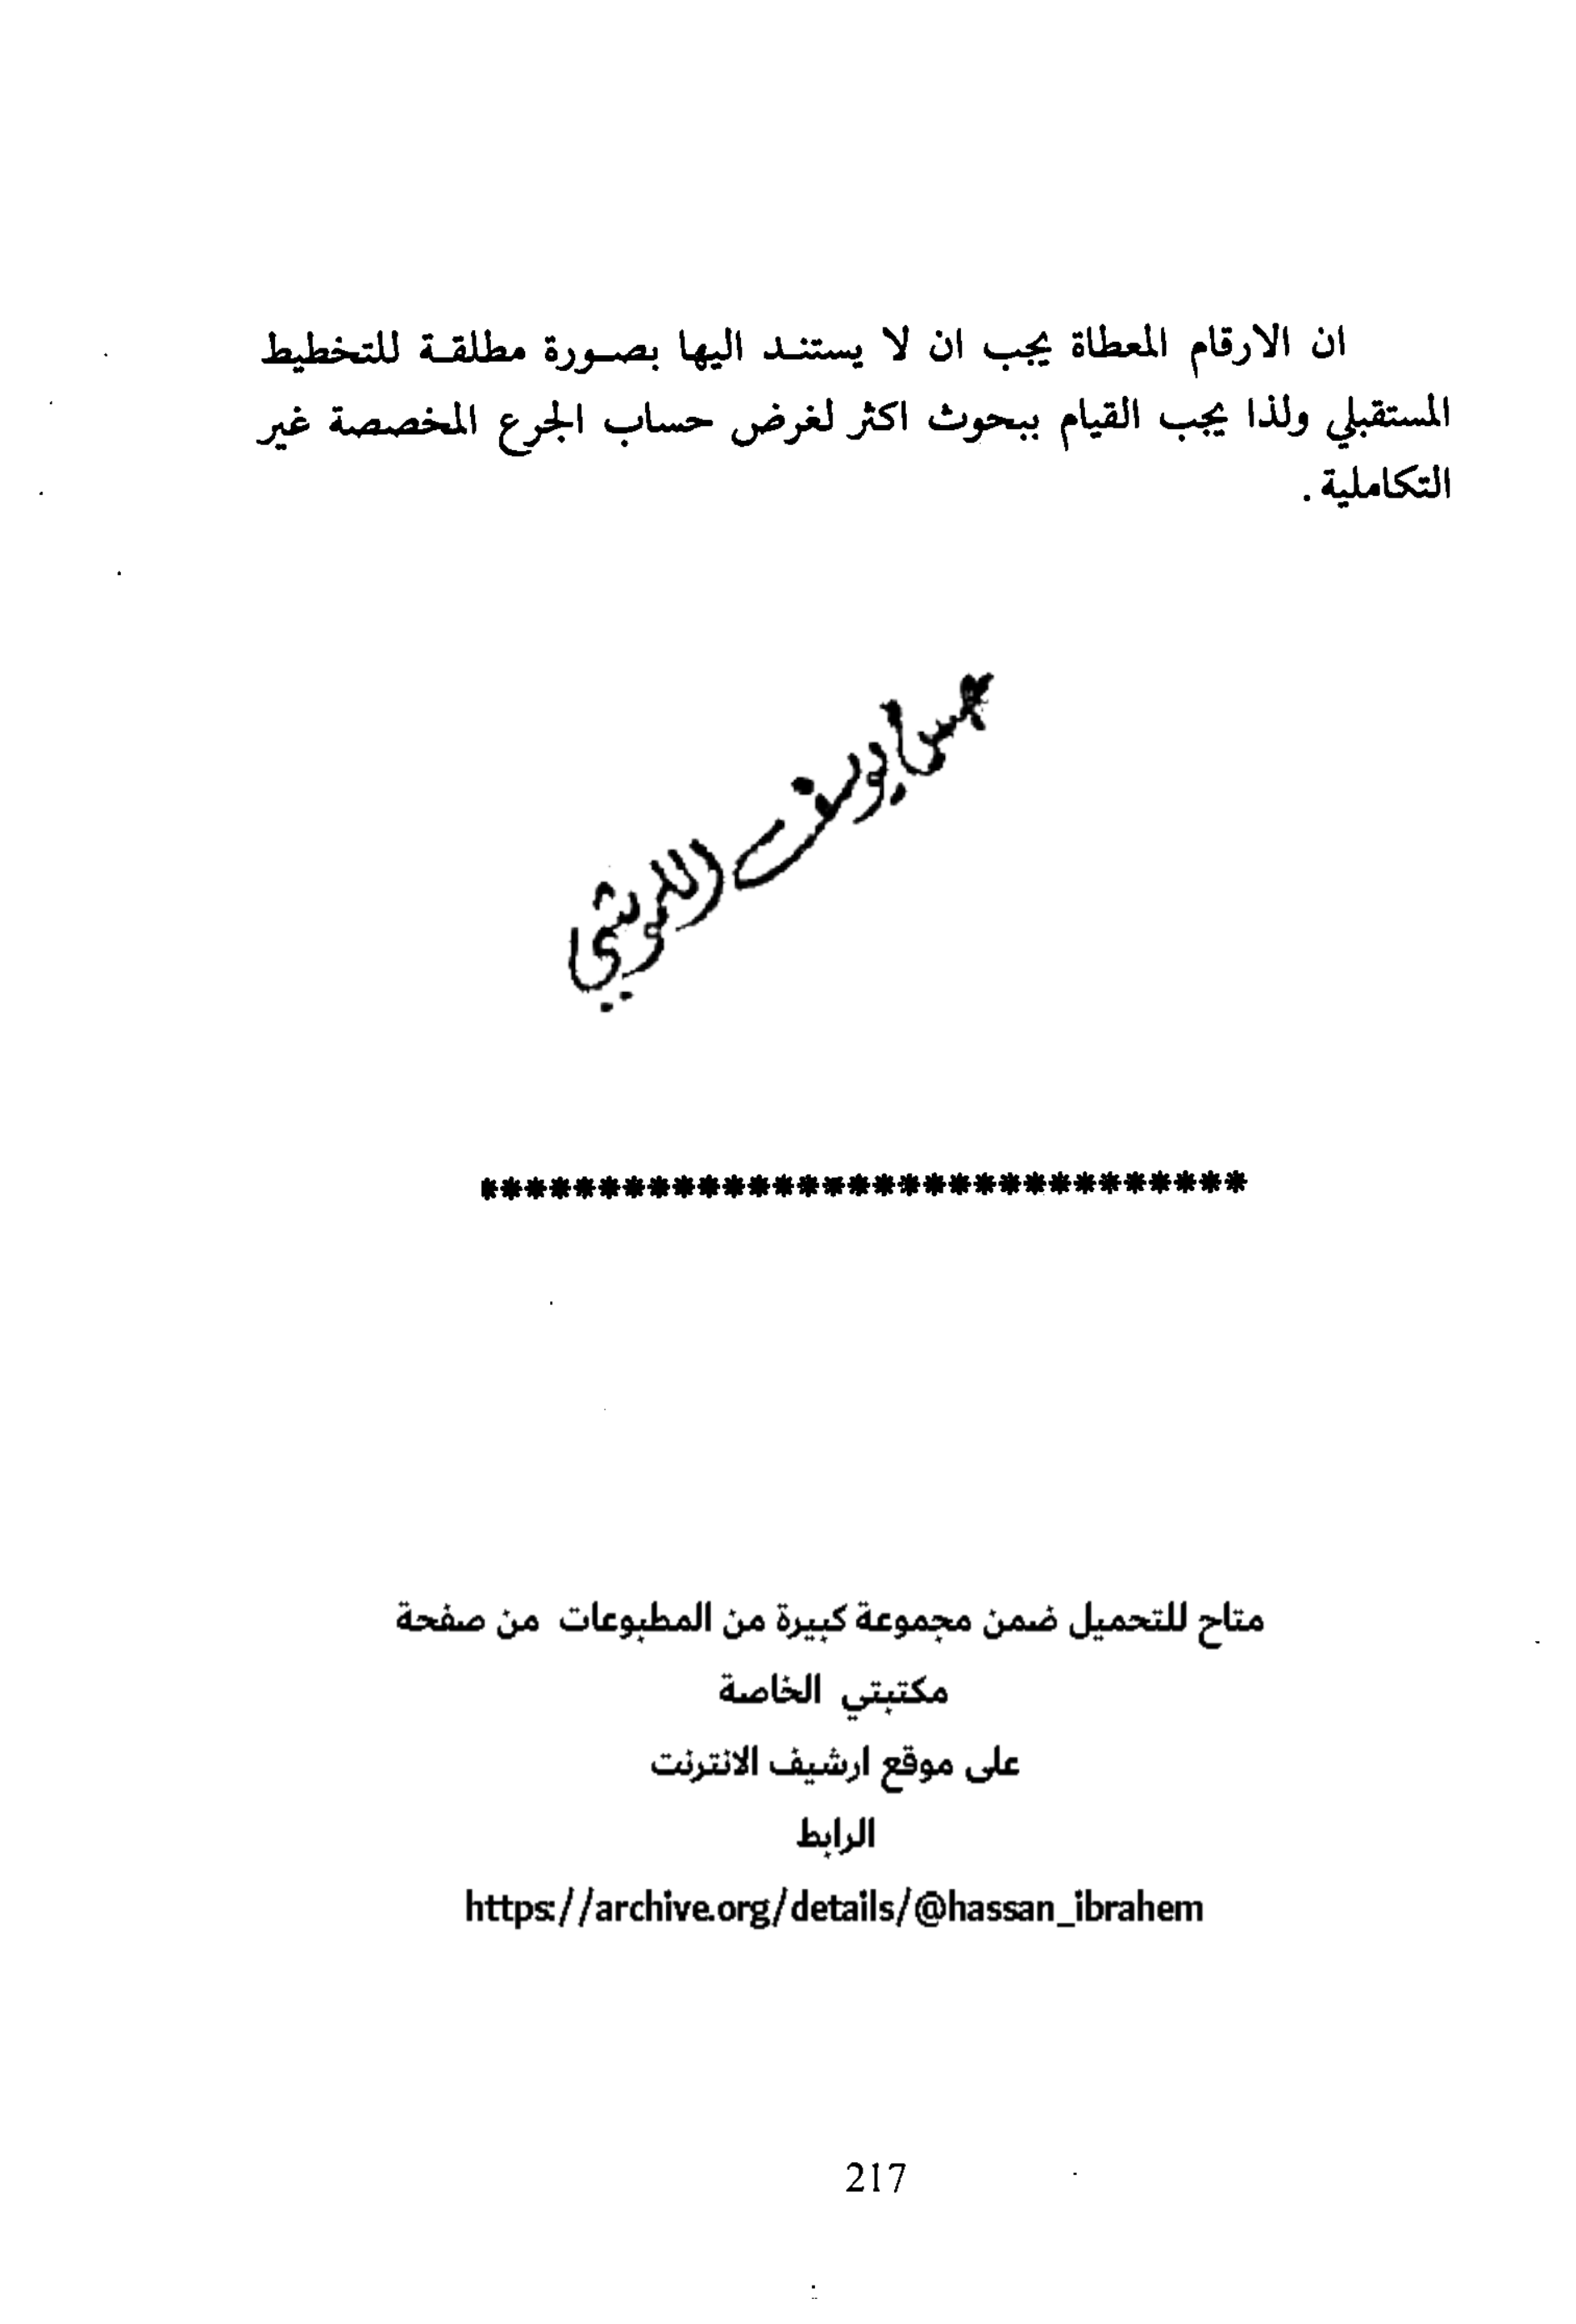 ان الارقام المعطاة يجب ان لا يستند اليها بصورة مطلقة للتخطيط
المستقبلي ولذا يجب القيام ببحوث اكثر لغرض حساب الجرع المخصصة غير
التكاملية .
يوسف
******************************* 
متاح للتحميل ضمن مجموعة كبيرة من المطبوعات من صفحة
مكتبتي الخاصة
على موقع ارشيف الانترنت
الرابط
https://archive.org/details/@hassan_ibrahem
217